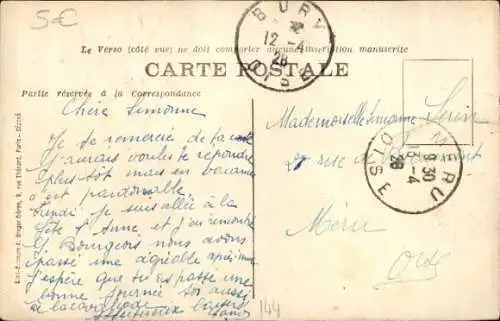 5€
BURY
12-4
28
OISE
Le Verso (côté vue) ne doit comporter aucune inscription manuscrite
CARTE POSTALE
Partie réservée à la Correspondance
Chère Simonne
Je te remercie de ta
J'aurais voulu te répondre
plus tôt mais en vacances
c'est pardonable.
Lundi je suis allée à la
fête d'Anne et j'ai rencontré
Y Bourgeois nous avons
passé une agréable après
J'espère que tu as passé une
bonne journée toi aussi
Mademoiselle Simonne
20 rue de
Méru
Oise
MÉRU
8 30
13-4
28
OISE
144